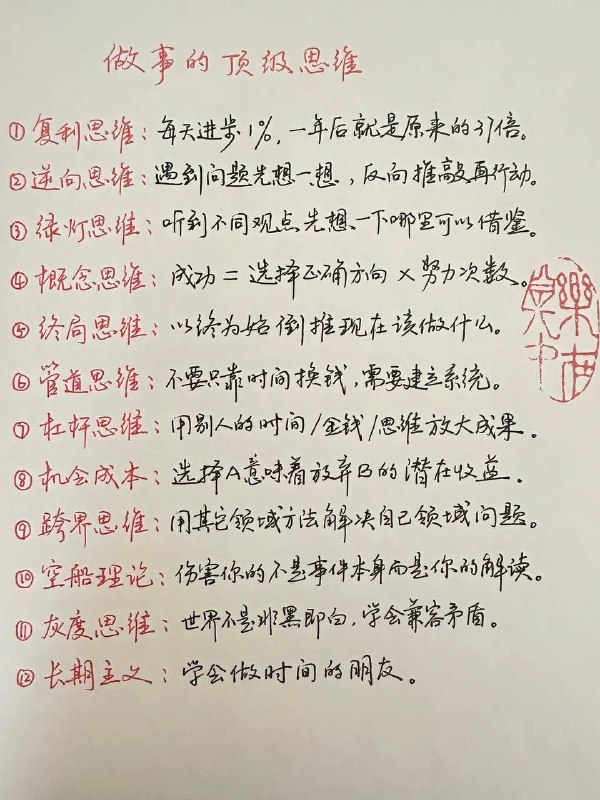 做事的顶级思维
① 复利思维：每天进步1%，一年后就是原来的37倍。
② 逆向思维：遇到问题先想一想，反向推敲再行动。
③ 绿灯思维：听到不同观点先想一下哪里可以借鉴。
④ 概念思维：成功=选择正确方向×努力次数。
⑤ 终局思维：以终为始倒推现在该做什么。
⑥ 管道思维：不要只靠时间换钱，需要建立系统。
⑦ 杠杆思维：用别人的时间/金钱/思维放大成果。
⑧ 机会成本：选择A意味着放弃B的潜在收益。
⑨ 跨界思维：用其它领域方法解决自己领域问题。
⑩ 空船理论：伤害你的不是事件本身而是你的解读。
⑪ 灰度思维：世界不是非黑即白，学会兼容矛盾。
⑫ 长期主义：学会做时间的朋友。